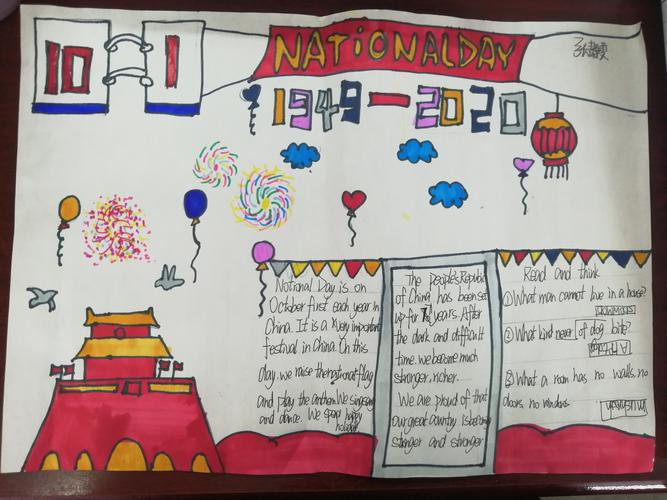 10 1
NATIONALDAY
1949—2020
National Day is on
October first each year in
China. It is a very important
festival in China. On this
day. we raise the national flag
and play the anthem. We sing song
and dance. We spend happy
holiday
The People's Republic
of China has been set
up for years. After
the dark and difficult
time. we become much
stronger, richer.
We are proud of that
our great country is becoming
stronger and stronger
Read and think
① What man cannot live in a house?
Snowman
② What kind never of dog bite?
③ What a room has no walls. no
doors no windows
Mushroom